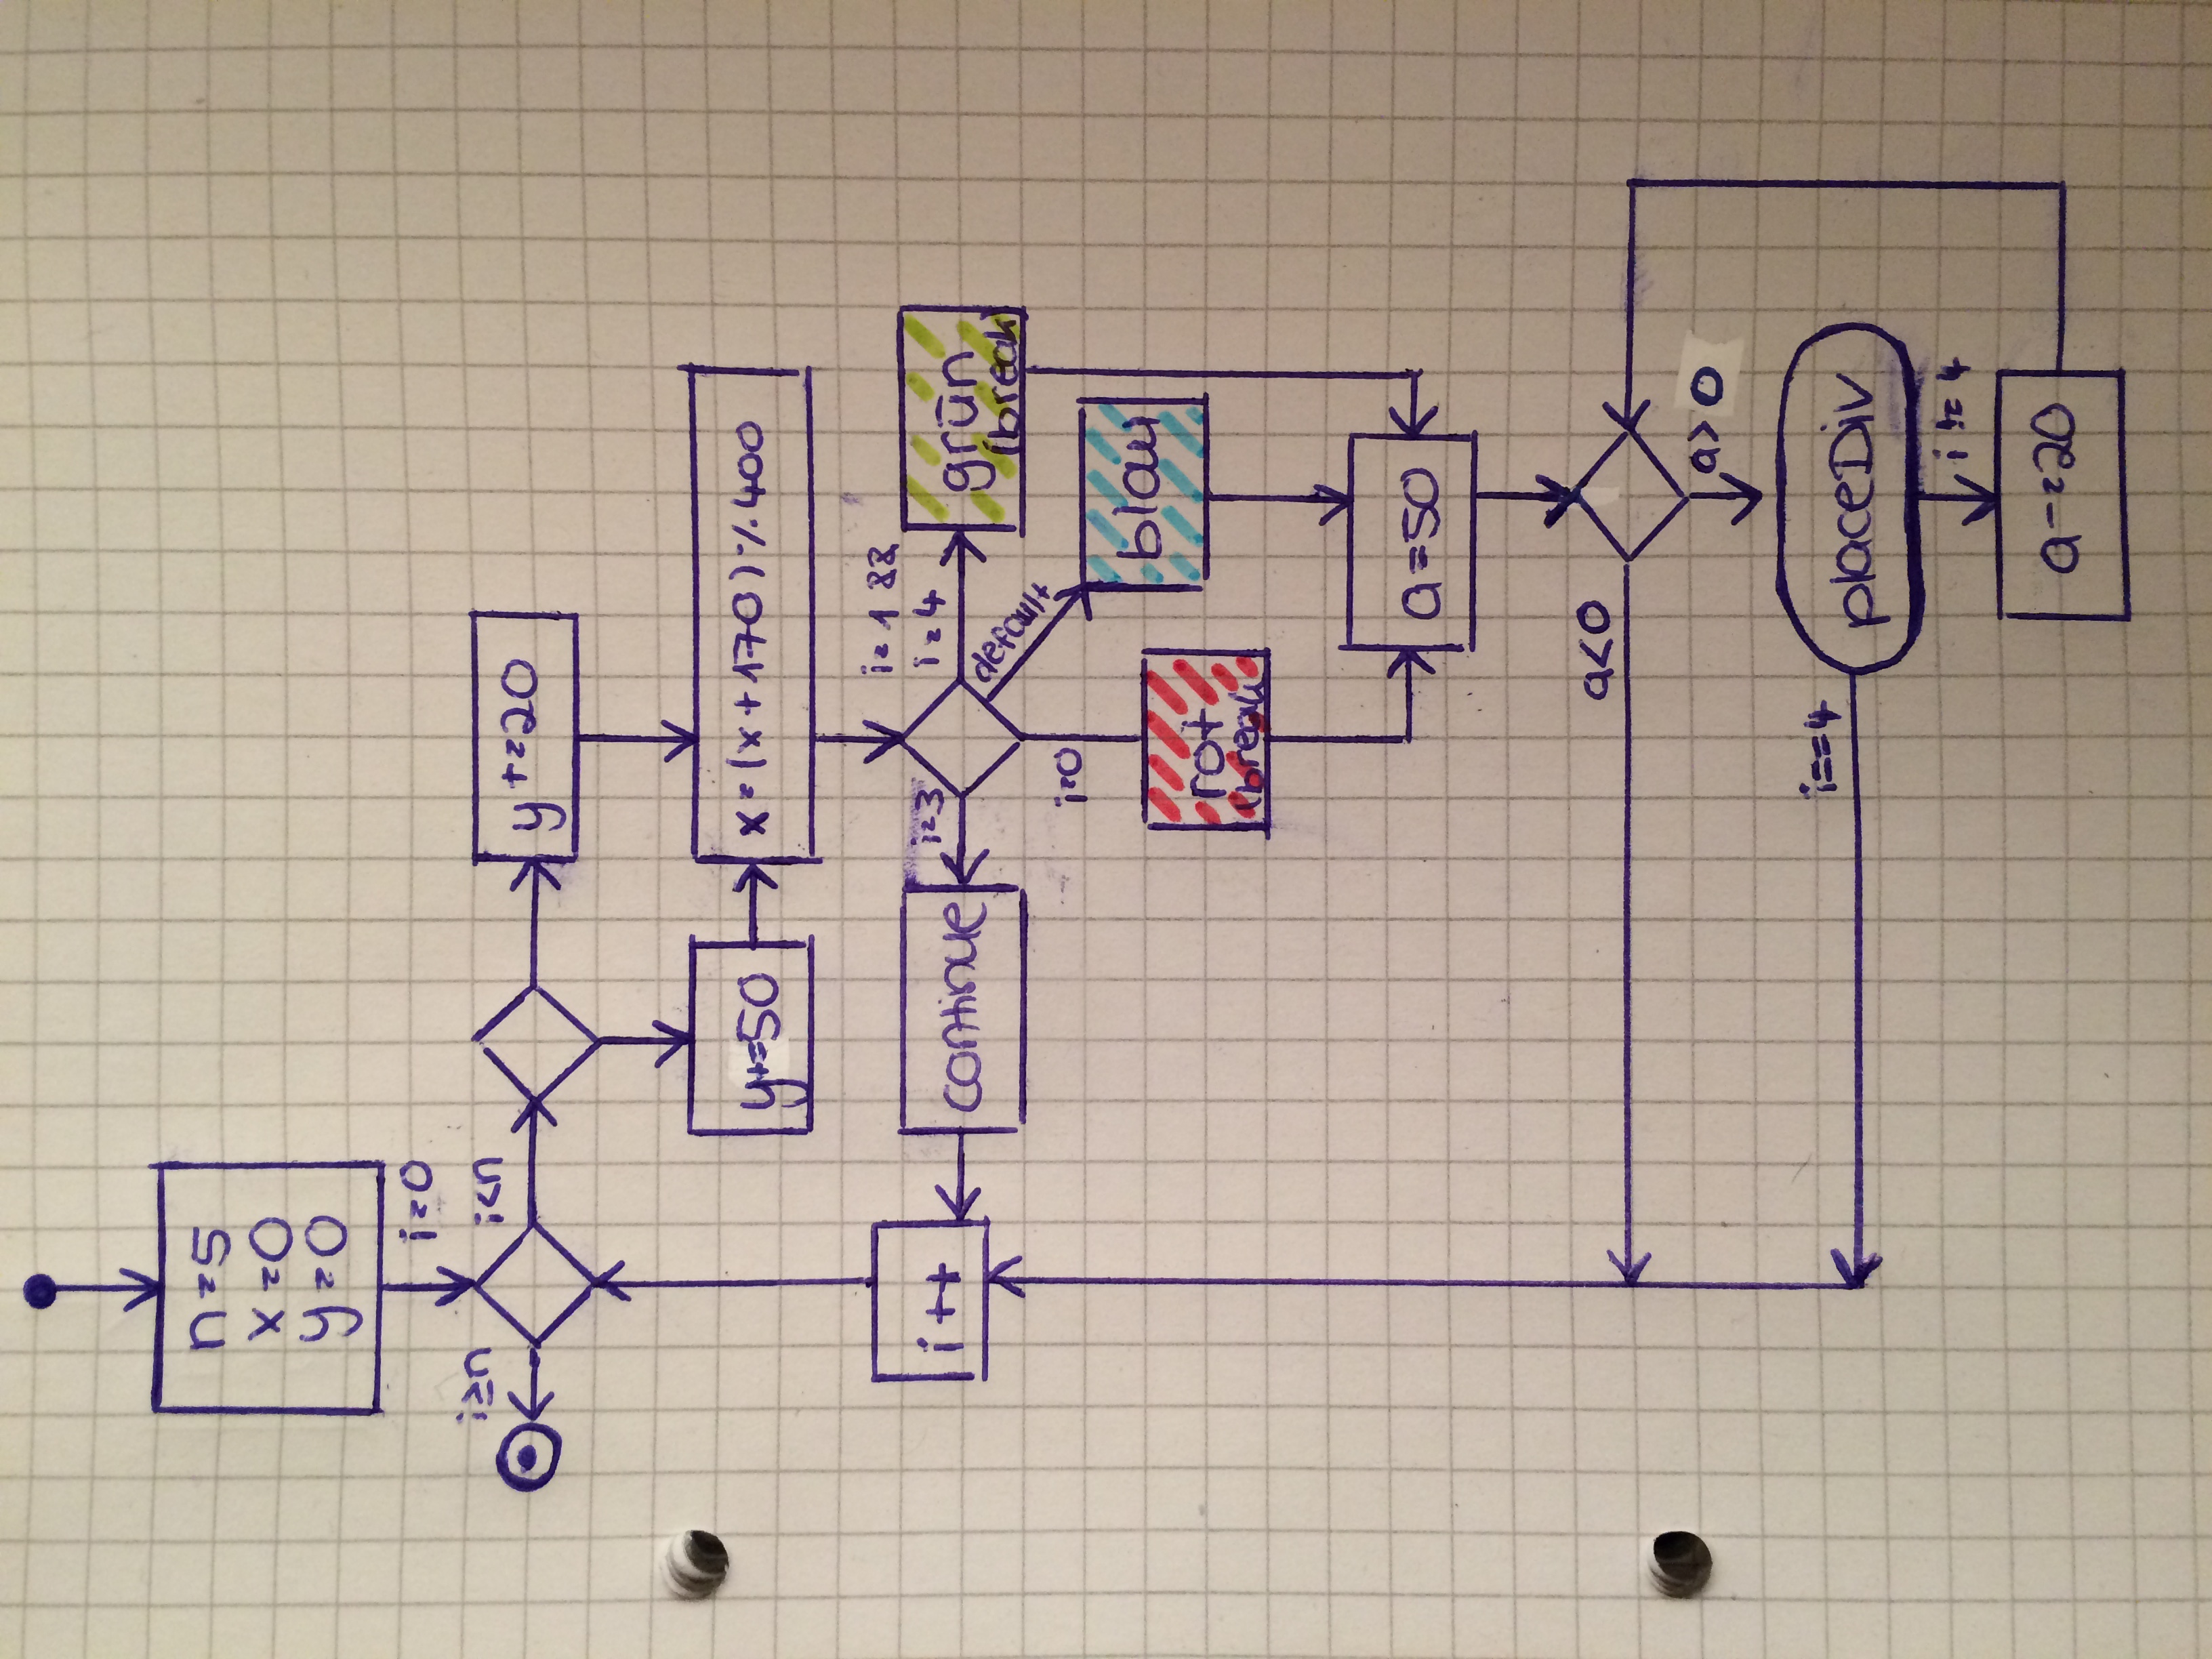 n=5
x=0
y=0
i=0
i≥n
i<n
y+=20
y+=50
x=(x+170)%400
i=1 &&
i=4
i=3
i++
continue
grün
(break)
default
i=0
blau
rot
(break
a=50
a<0
a>0
i==4
placeDiv
i!=4
a-=20